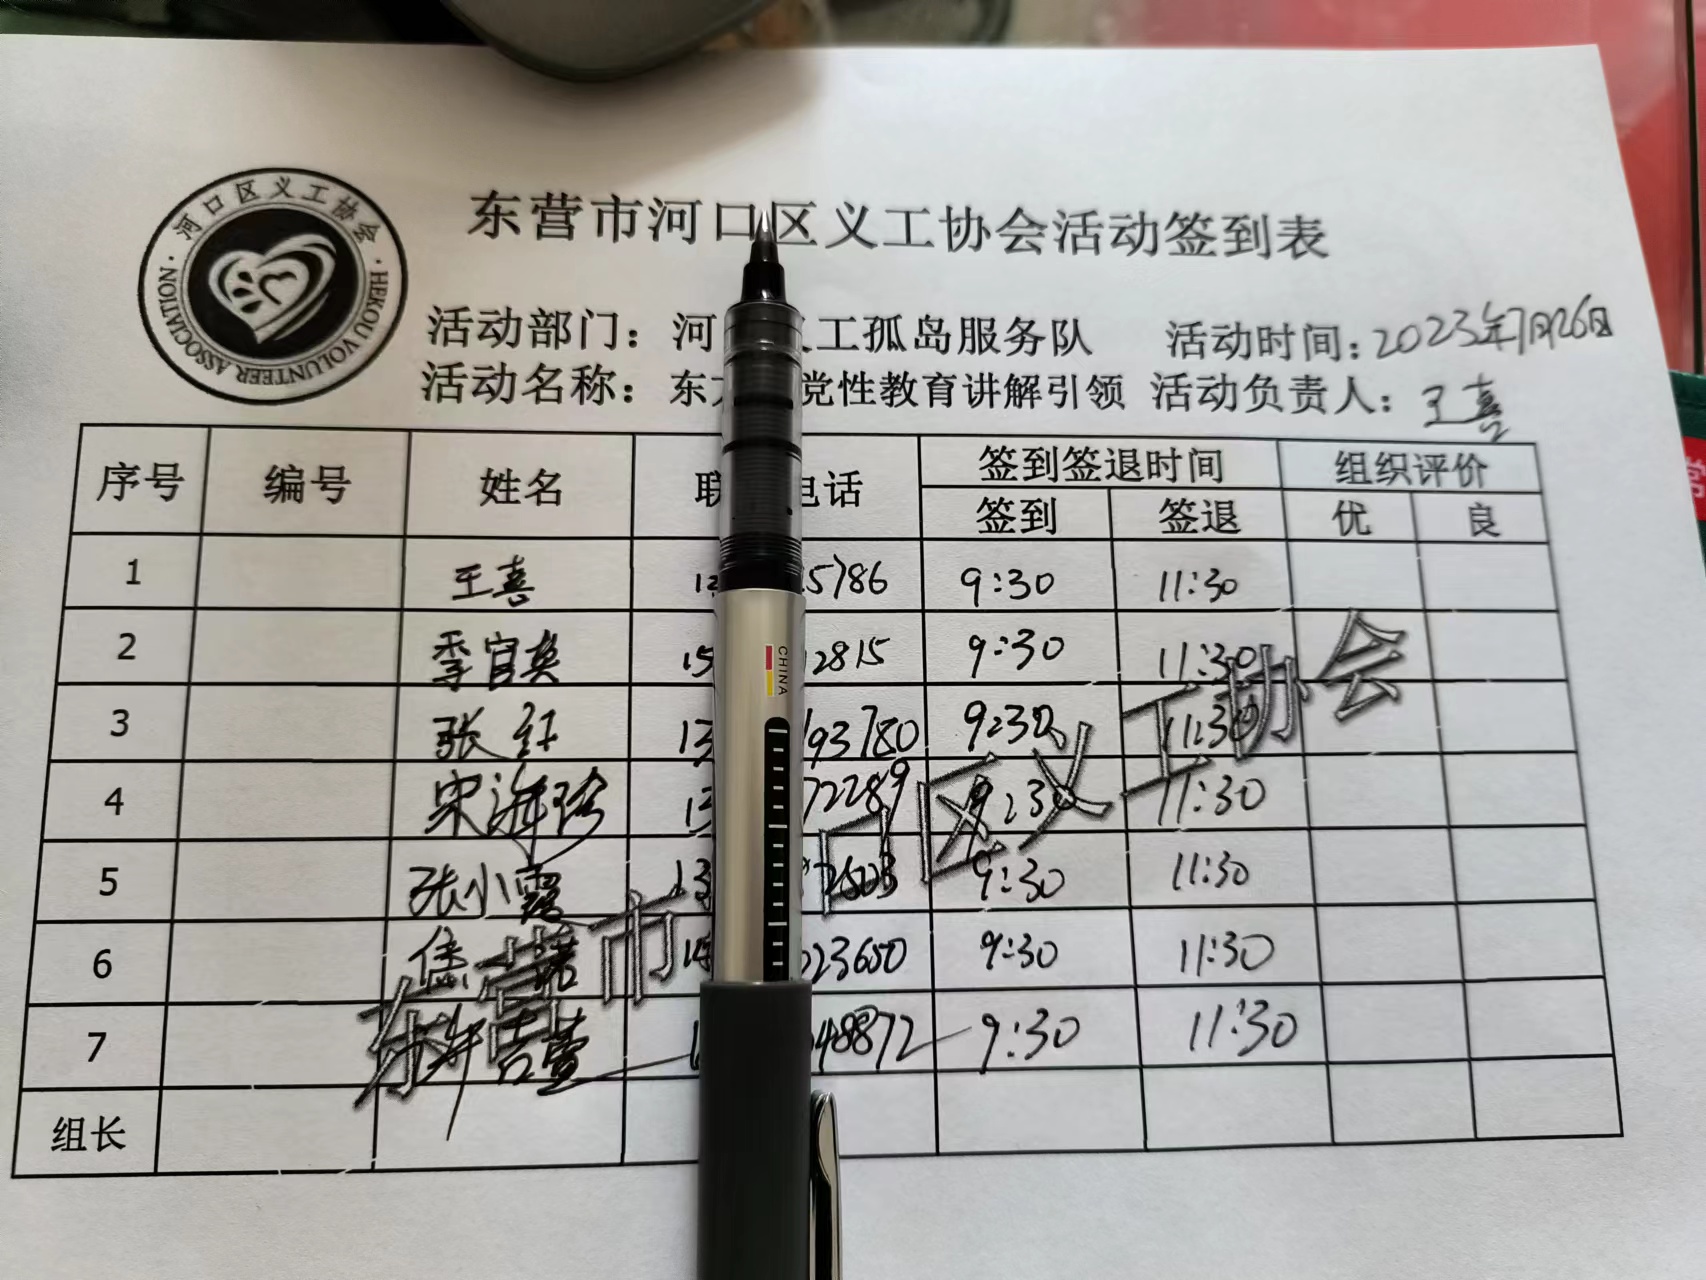 河口区义工协会
HEKOU VOLUNTEER ASSOCIATION
东营市河口区义工协会活动签到表
活动部门：河 义工孤岛服务队 活动时间：2023年7月26日
活动名称：东 党性教育讲解引领 活动负责人：王喜
序号 编号 姓名 联 电话 签到签退时间 组织评价
签到 签退 优 良
1 王喜 13 5786 9:30 11:30
2 李官英 15 2815 9:30 11:30
3 张红 13 93780 9:30 11:30
4 宋海珍 13 72289 9:30 11:30
5 张小霞 13 2503 9:30 11:30
6 23650 9:30 11:30
7 48872 9:30 11:30
组长
东营市 口区义工协会
CHINA